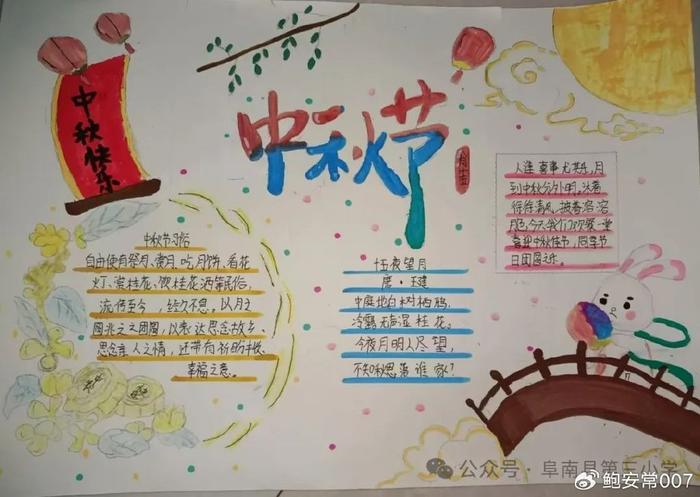 中秋快乐
中秋节
八月十五
人逢喜事尤其乐,月
到中秋分外明。沐着
徐徐清风,披着溶溶
月色,今天我们欢聚一堂
喜迎中秋佳节,同享节
日团圆之乐。
中秋节习俗
自由便有祭月、赏月、吃月饼、看花
灯、赏桂花、饮桂花酒等民俗,
流传至今,经久不息。以月之
圆兆之之团圆,以表达思念故乡、
思念亲人之情,还带有祈盼丰收、
幸福之意。
十五夜望月
唐·王建
中庭地白树栖鸦,
冷露无声湿桂花。
今夜月明人尽望,
不知秋思落谁家?
公众号·阜南县第三小学
鲍安常007